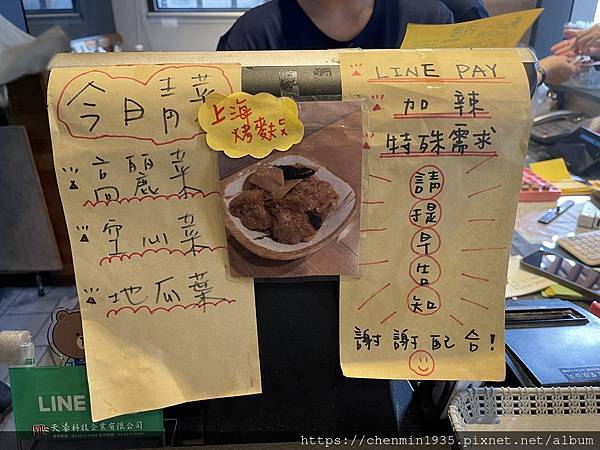 今日青菜
高麗菜
空心菜
地瓜葉
上海
烤麩
LINE PAY
加辣
特殊需求
請
提
早
告
知
謝謝配合!
LINE
https://chenmin1935.pixnet.net/album